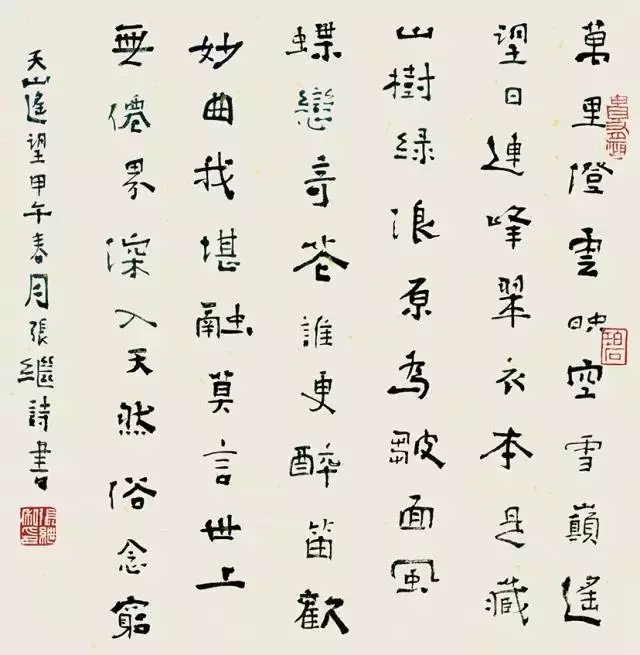 萬里澄雲映空雪巔遙
碧
望日連峰翠衣本是藏
山樹綠浪原為皺面風
蝶戀奇花誰更醉笛歡
妙曲我堪融莫言世上
無僊界深入天然俗念窮
天山遙望甲午春月張繼詩書
張繼私印